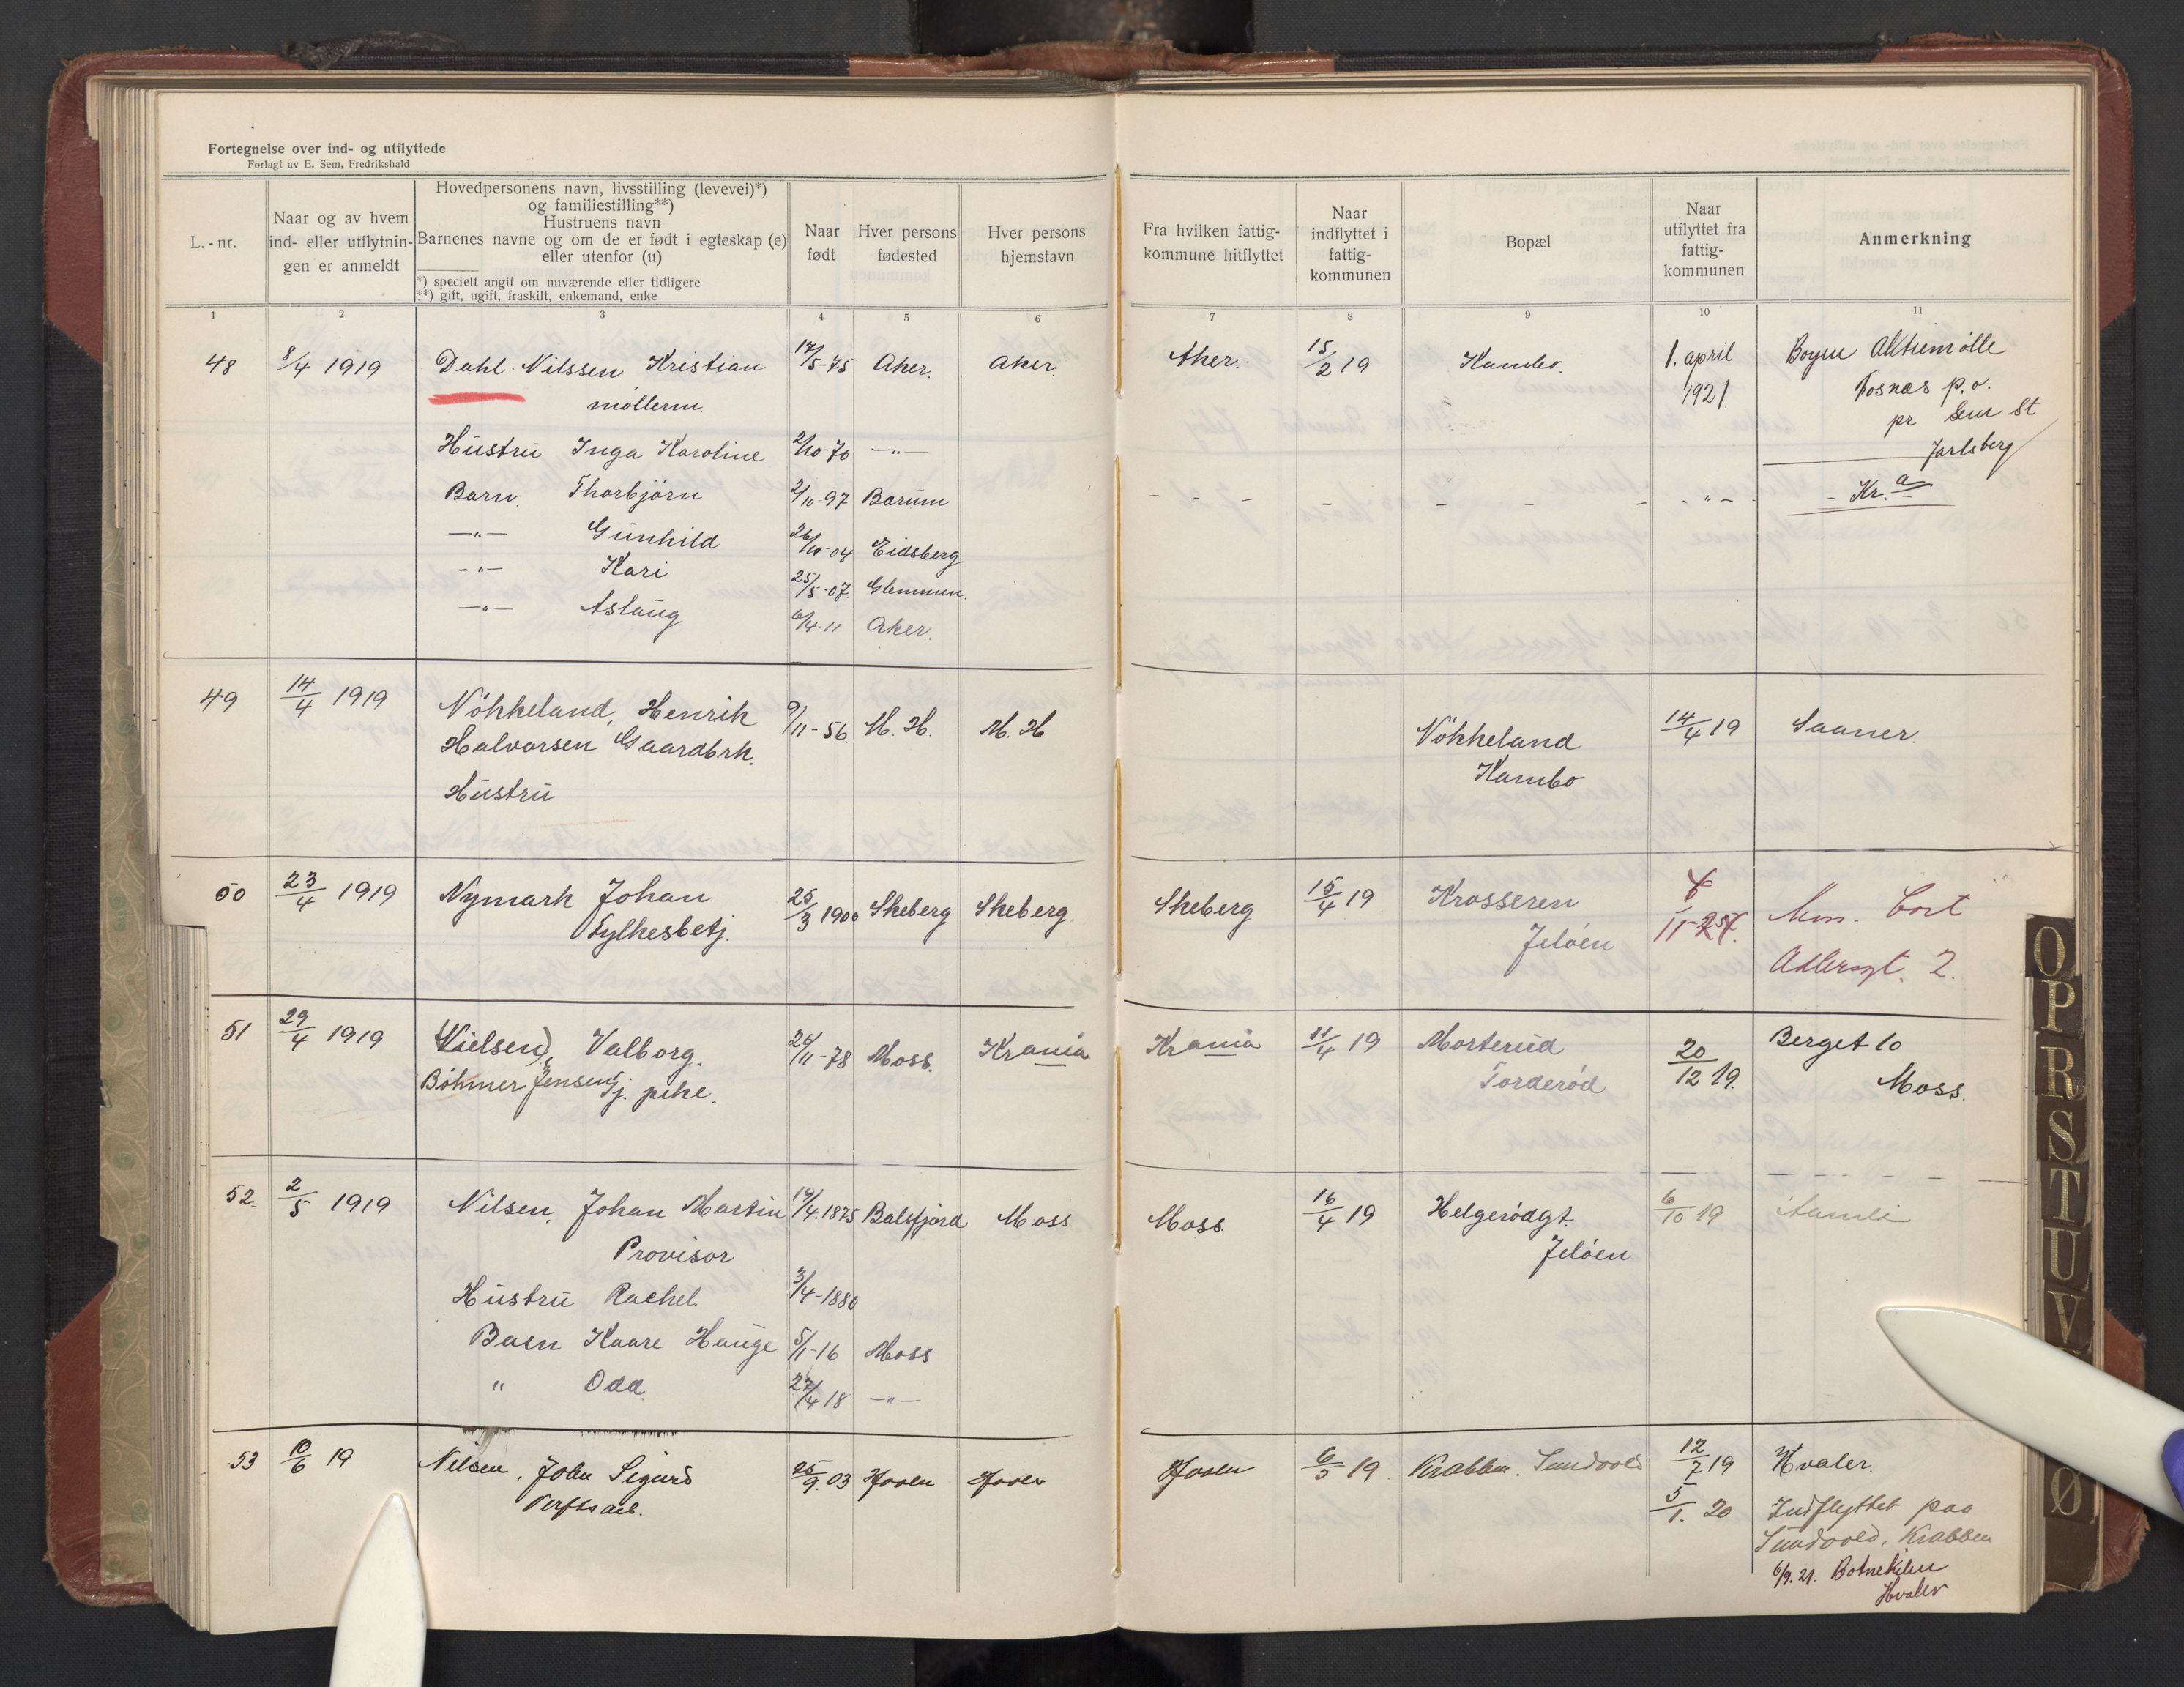 Fortegnelse over ind- og utflyttede
Forlagt av E. Sem, Fredrikshald
L.-nr.
Naar og av hvem ind- eller utflytningen er anmeldt
Hovedpersonens navn, livsstilling (levevei)*)
og familiestilling**)
Hustruens navn
Barnenes navne og om de er født i egteskap (e)
eller utenfor (u)
*) specielt angit om nuværende eller tidligere
**) gift, ugift, fraskilt, enkemand, enke
Naar født
Hver persons fødested
Hver persons hjemstavn
Fra hvilken fattigkommune hitflyttet
Naar indflyttet i fattigkommunen
Bopæl
Naar utflyttet fra fattigkommunen
Anmerkning
1 2 3 4 5 6 7 8 9 10 11
48 8/4 1919 Dahl-Nilssen Kristian 17/5-75 Aker. Aker. Aker. 15/2 19 Kambo. 1. april 1921. Bøyen Aktiemølle
møllerm. Fosnæs p.o.
pr Sem St
Jarlsberg
Hustru Inga Karoline 2/10-70 —"—
Barn Thorbjørn 2/10-97 Bærum - - - - - - - - " - - Kr.a
—"— Gunhild 26/10-04 Eidsberg
-"- Kari 25/5-07. Glemmen.
—"— Aslaug 6/4-11 Aker.
49 14/4 1919 Nökkeland, Henrik 9/11-56. M. H. M. H Nökkeland 14/4 19 Saaner.
Halvorsen Gaardbrk. Kambo
Hustru
50 23/4 1919 Nymark Johan 25/3 1900 Skeberg Skeberg Skeberg 15/4 19 Krosseren
Fylkesbetj. Jeløen
2.
51 29/4 1919 (Nielsen), Valborg. 24/11-78 Moss. Krania Krania 11/4 19 Morterud 20/12 19. Berget 10
Böhmer Jensen Tj. pike. Torderød Moss.
52. 2/5 1919 Nilsen, Johan Martin 19/4.1875 Balsfjord Moss Moss 16/4 19 Helgerødgt. 6/10 19
Provisor Jeløen
Hustru Rachel. 3/4-1880
Barn Kaare Hauge 5/1-16 Moss
" Odd. 27/4 18 —"—
53 10/6 19 Nilsen, John Sigurd 25/9.03 Hvaler Hvaler Hvaler 6/5 19. Krabben. Sundvold 12/7 19 Hvaler.
Verftsarb. 5/1. 20 Indflyttet paa
Sundvold, Krabben
6/9.21. Botnekilen
Hvaler
O
P
R
S
T
U
V
Ø